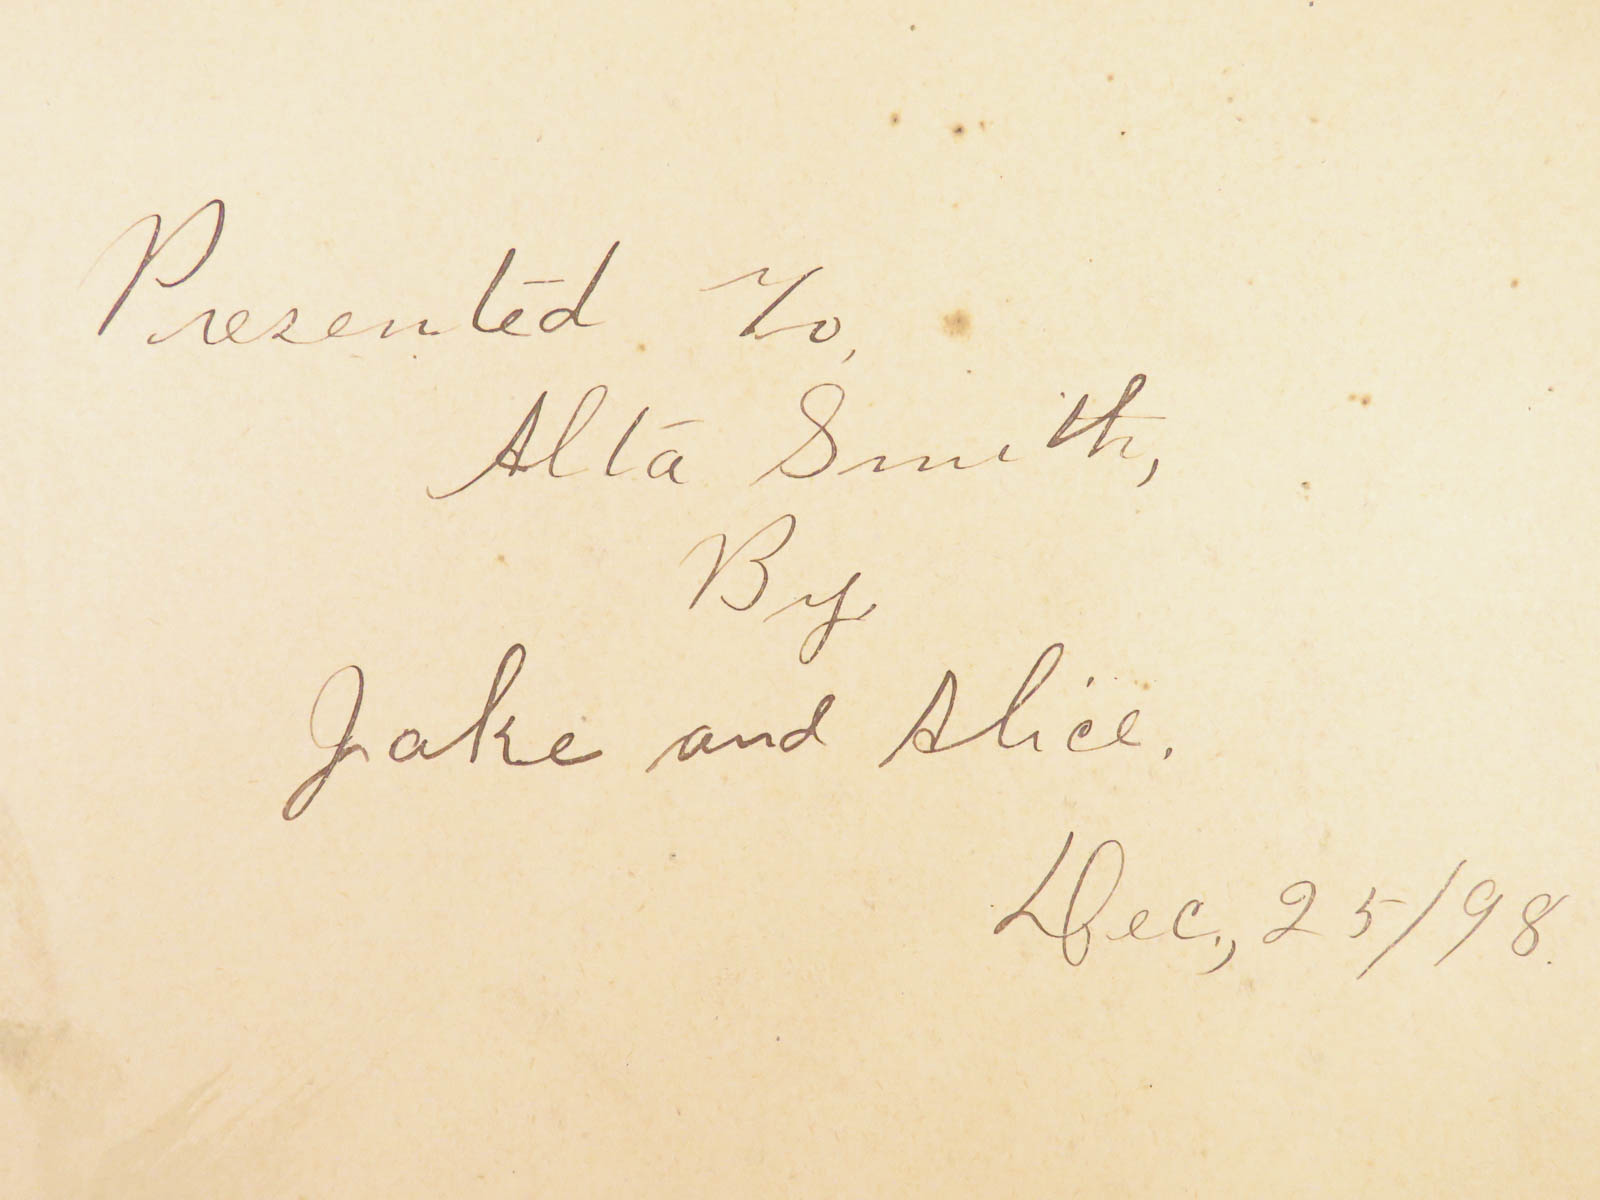 Presented To,
Alta Smith,
By
Jake and Alice.
Dec., 25/98.